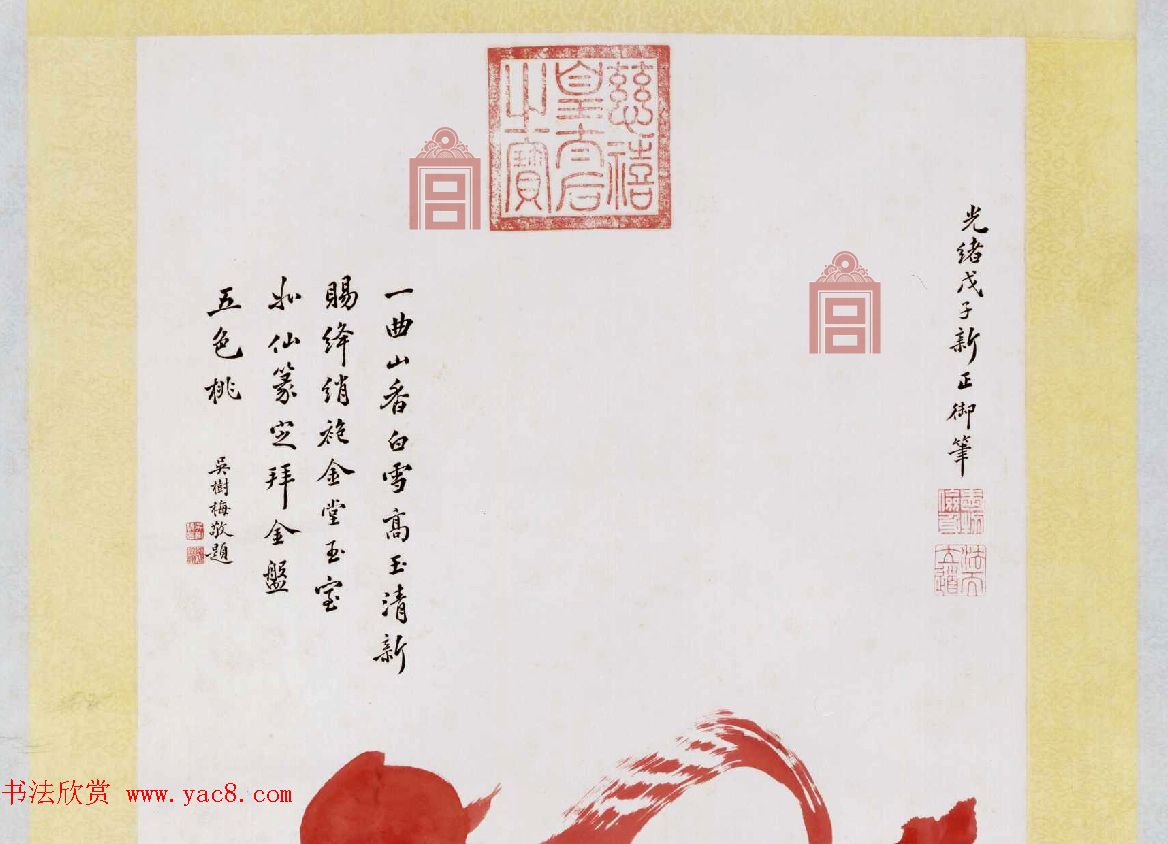 慈禧
皇太后
之寶
光緒戊子新正御筆
一曲山香白雪高玉清新
賜絳綃袍金堂玉室
仙篆定拜金盤
五色桃
吳樹梅敬題
书法欣赏 www.yac8.com